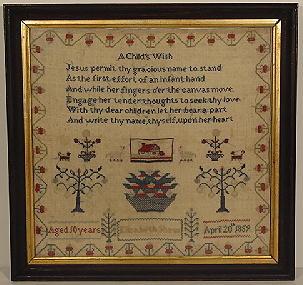 A Child's Wish
Jesus permit thy gracious name to stand
As the first effort of an infant hand
And while her fingers o'er the canvas move
Engage her tender thoughts to seek thy love
With thy dear children let her bear a part
And write thy name, thyself, upon her heart
Aged 10 years
Elizabeth
April 20th 1859